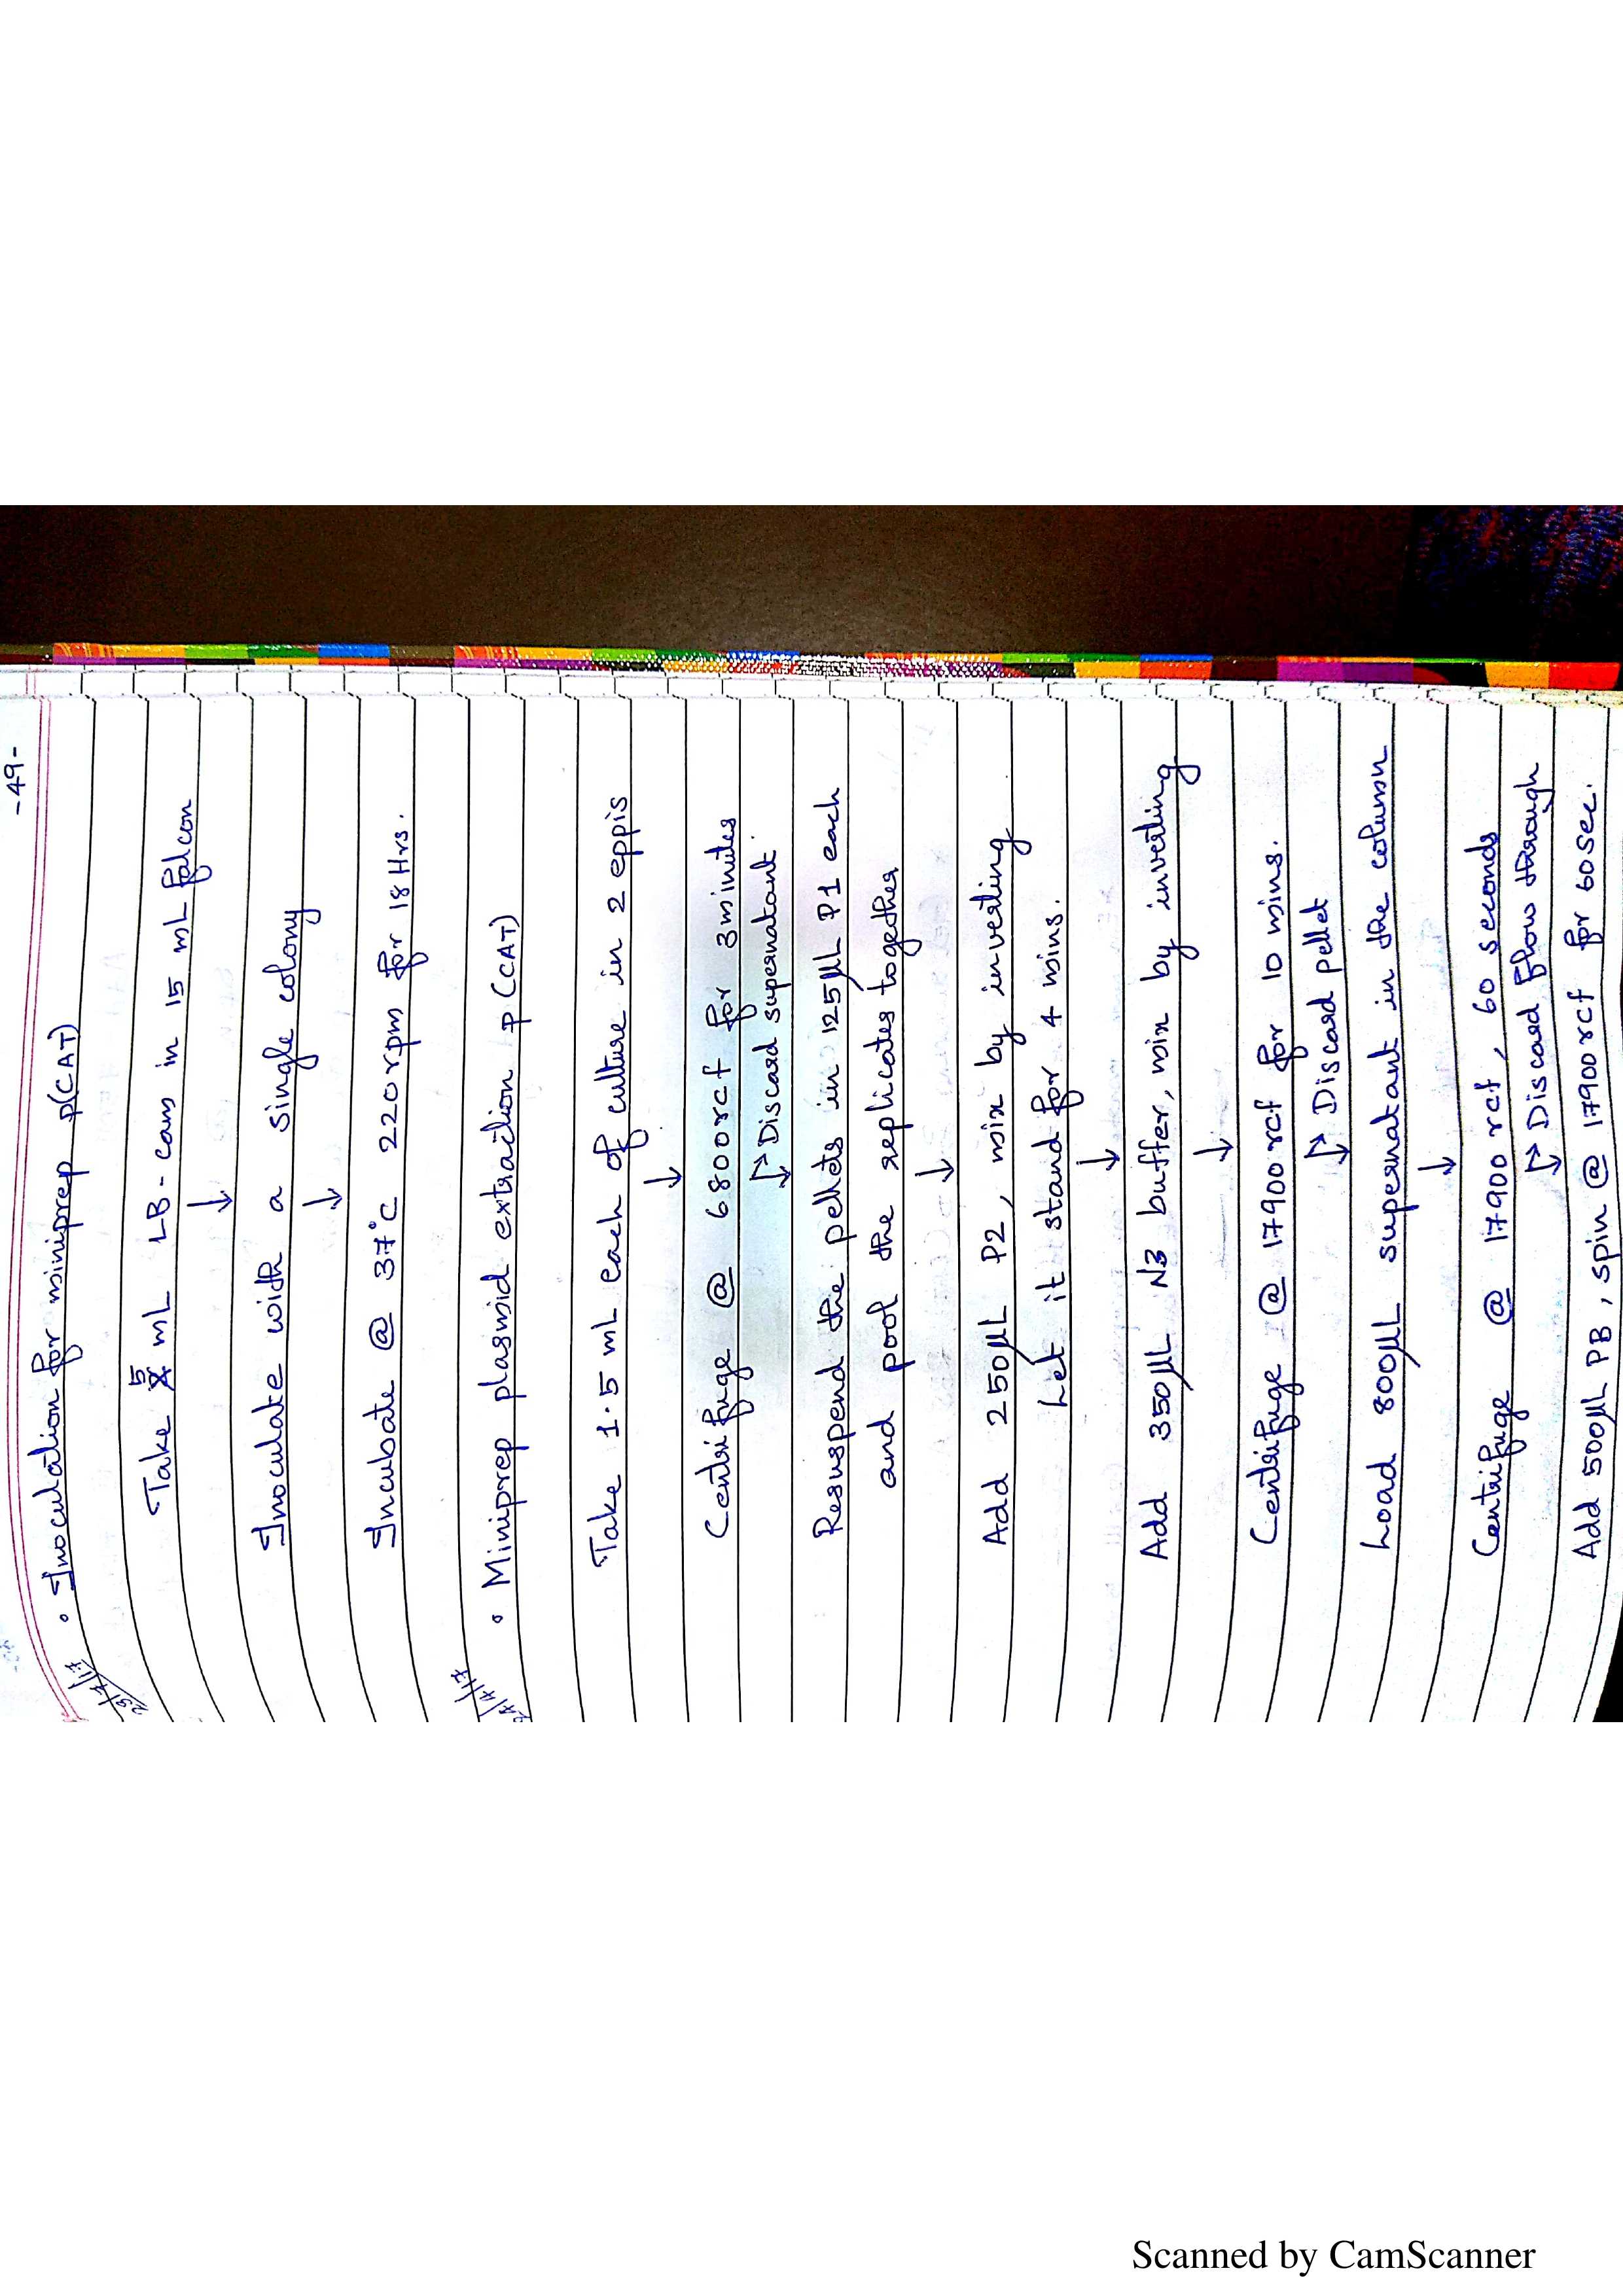 -49-
• Inoculation for miniprep p(CAT)
Take 5 mL LB-cam in 15 mL falcon
↓
Inoculate with a single colony
↓
Incubate @ 37°C 220rpm for 18Hrs.
• Miniprep plasmid extraction p(CAT)
Take 1.5 mL each of culture in 2 eppis
↓
Centrifuge @ 6800rcf for 3minutes
↓→ Discard supernatant.
Resuspend the pellets in 125μL P1 each
and pool the replicates together
↓
Add 250μL P2, mix by inverting
Let it stand for 4 mins.
↓
Add 350μL N3 buffer, mix by inverting
↓
Centrifuge @ 17900rcf for 10 mins.
↓→ Discard pellet
Load 800μL supernatant in the column
↓
Centrifuge @ 17900 rcf, 60 seconds
↓→ Discard flow through
Add 500μL PB, spin @ 17900rcf for 60sec.
Scanned by CamScanner